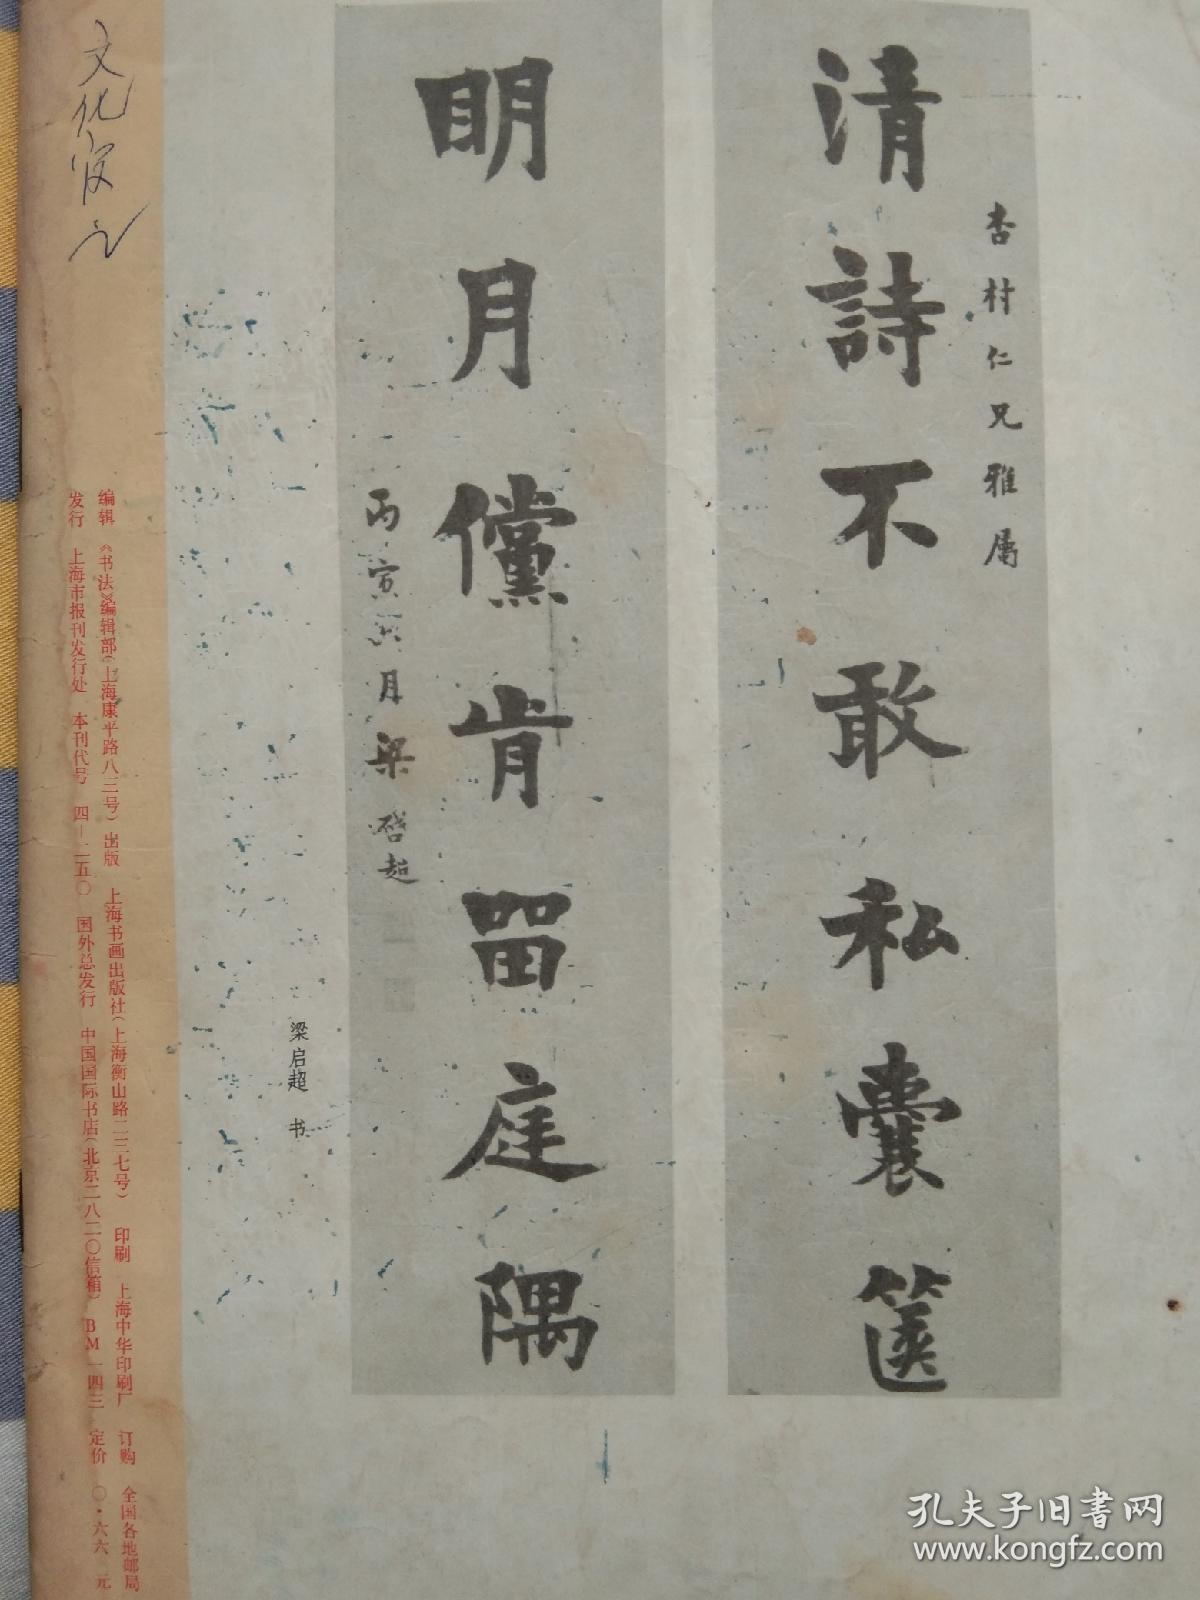 杏村仁兄雅属
清詩不敢私囊箧
明月儻肯留庭隅
丙寅六月梁啓超
梁启超 书
文化
编辑 《书法》编辑部(上海康平路八三号) 出版 上海书画出版社(上海衡山路二三七号) 印刷 上海中华印刷厂 订购 全国各地邮局
发行 上海市报刊发行处 本刊代号 四—二五〇 国外总发行 中国国际书店(北京二八二〇信箱) BM一四三 定价 〇·六六元
孔夫子旧书网
www.kongfz.com